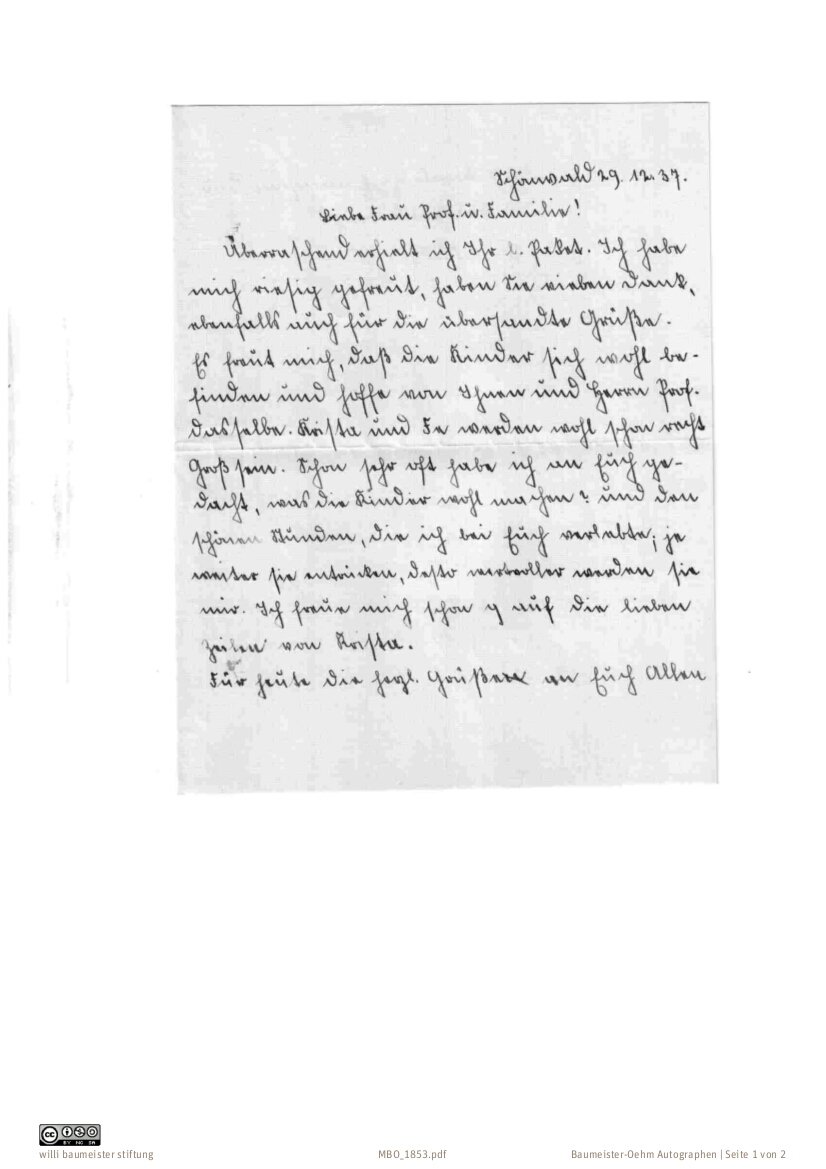 Schönwald 29. 12. 37.
Liebe Frau Prof. u. Familie!
Überraschend erhielt ich Ihr l. Paket. Ich habe
mich riesig gefreut, haben Sie vielen Dank,
ebenfalls auch für die übersandte Grüße.
Es freut mich, daß die Kinder sich wohl be-
finden und hoffe von Ihnen und Herrn Prof.
dasselbe. Krista und Fe werden wohl schon recht
Groß sein. Schon sehr oft habe ich an Euch ge-
dacht, was die Kinder wohl machen? und den
schönen Stunden, die ich bei Euch verlebte; je
weiter sie entrücken, desto wertvoller werden sie
mir. Ich freue mich schon auf die lieben
Zeilen von Krista.
Für heute die herzl. Grüße an Euch Allen
CC BY NC SA
willi baumeister stiftung
MBO_1853.pdf
Baumeister-Oehm Autographen | Seite 1 von 2